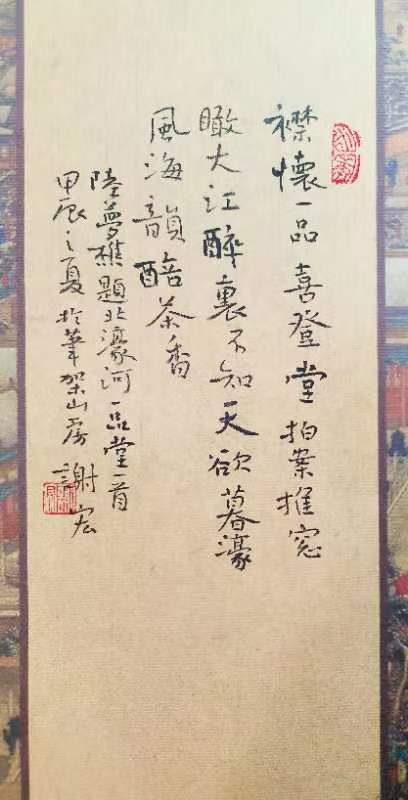 襟懷一品喜登堂拍案推窓
瞰大江醉裏不知天欲暮濠
風海韻醅茶香
陸夢樵題北濠河一品堂一首
甲辰之夏於筆架山房謝宏